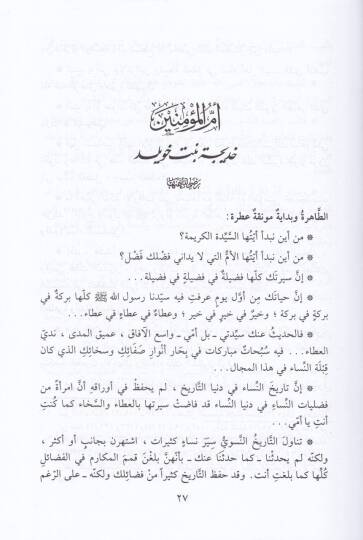 أمّ المؤمنين
خديجة بنت خويلد
رضي الله عنها
الطَّاهرةُ وبدايةٌ مونقةٌ عطرة :
* من أين نبدأ أيّتُها السَّيِّدة الكريمة؟
* من أين نبدأ أيّتُها الأمُّ التي لا يداني فضْلك فَضْل؟
* إنَّ سيرتَك كلّها فضيلةٌ في فضيلةٍ في فضيلة...
* إنَّ حياتَك مِن أوَّل يومٍ عرفتِ فيه سيّدنا رسول الله ﷺ كلّها بركةٌ في
بركةٍ في بركة ؛ وخيرٌ في خيرٍ في خير ؛ وعطاءٌ في عطاءٍ في عطاء...
* فالحديثُ عنك سيّدتي ـ بل أمّي ـ واسع الآفاق ، عميق المدى ، نديّ
العطاء... فيه سُبُحاتٌ مباركات في بِحَار أنْوارِ صَفَائِك وسخائِك الذي كان
قِبْلَة النِّساء في هذا المجال...
* إنَّ تاريخَ النِّساء في دنيا التَّاريخ ، لم يحفظْ في أوراقهِ أنَّ امرأةً من
فضليات النِّساءِ في دنيا النِّساء قد فاضتْ سيرتها بالعطاء والسَّخاء كما كُنتِ
أنتِ يا أمّي...
* تناولَ التَّاريخُ النِّسْويُّ سِيَرَ نساءٍ كثيرات ، اشتهرن بجانبٍ أو أكثر ،
ولكنَّه لم يحدثْنا ـ كما حدثَنا عنك ـ بأنّهنَّ بلغْنَ قممَ المكارمِ في الفضائلِ
كُلِّها كما بلغتِ أنت . وقد حفظ التَّاريخ كثيراً منْ فضائلك ولكنّه ـ على الرّغم
٢٧